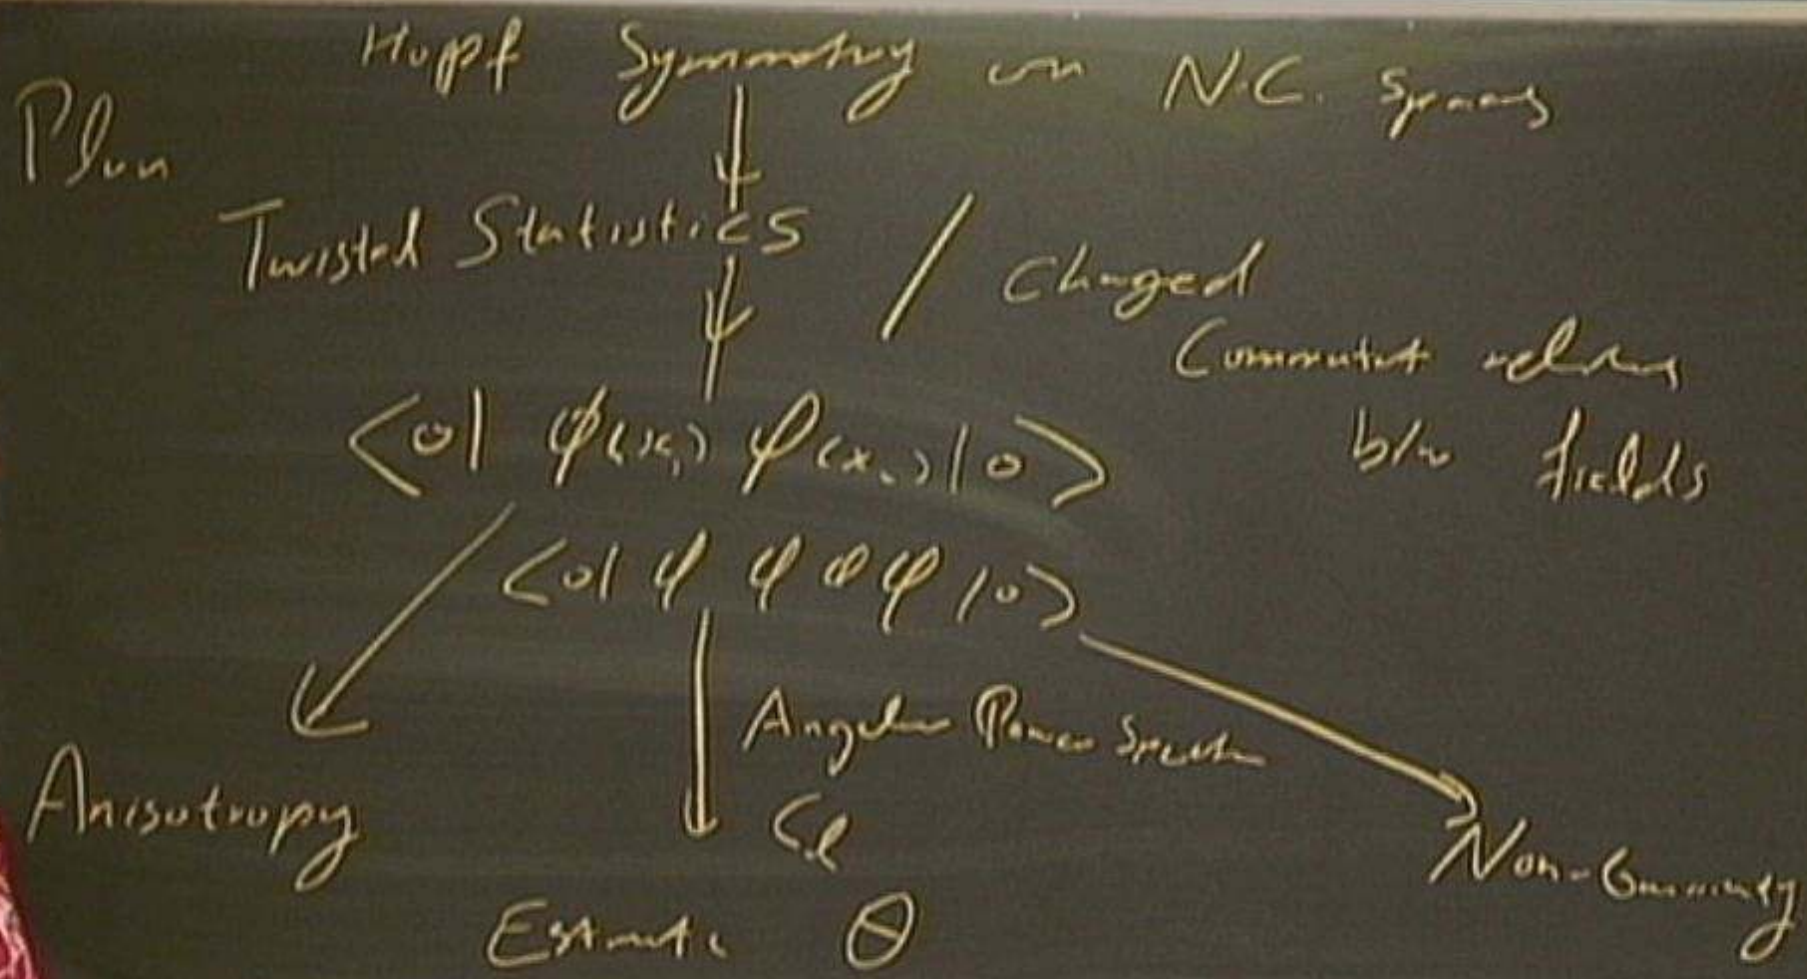 Hopf Symmetry on N.C. Spaces
Plan
Twisted Statistics / Changed
Commutat relations
b/w fields
<0| φ(x₁) φ(x₂) |0>
<0| φ φ φ φ |0>
Angular Power Spectrum
Anisotropy
Cl
Non-Gaussianity
Estimate θ